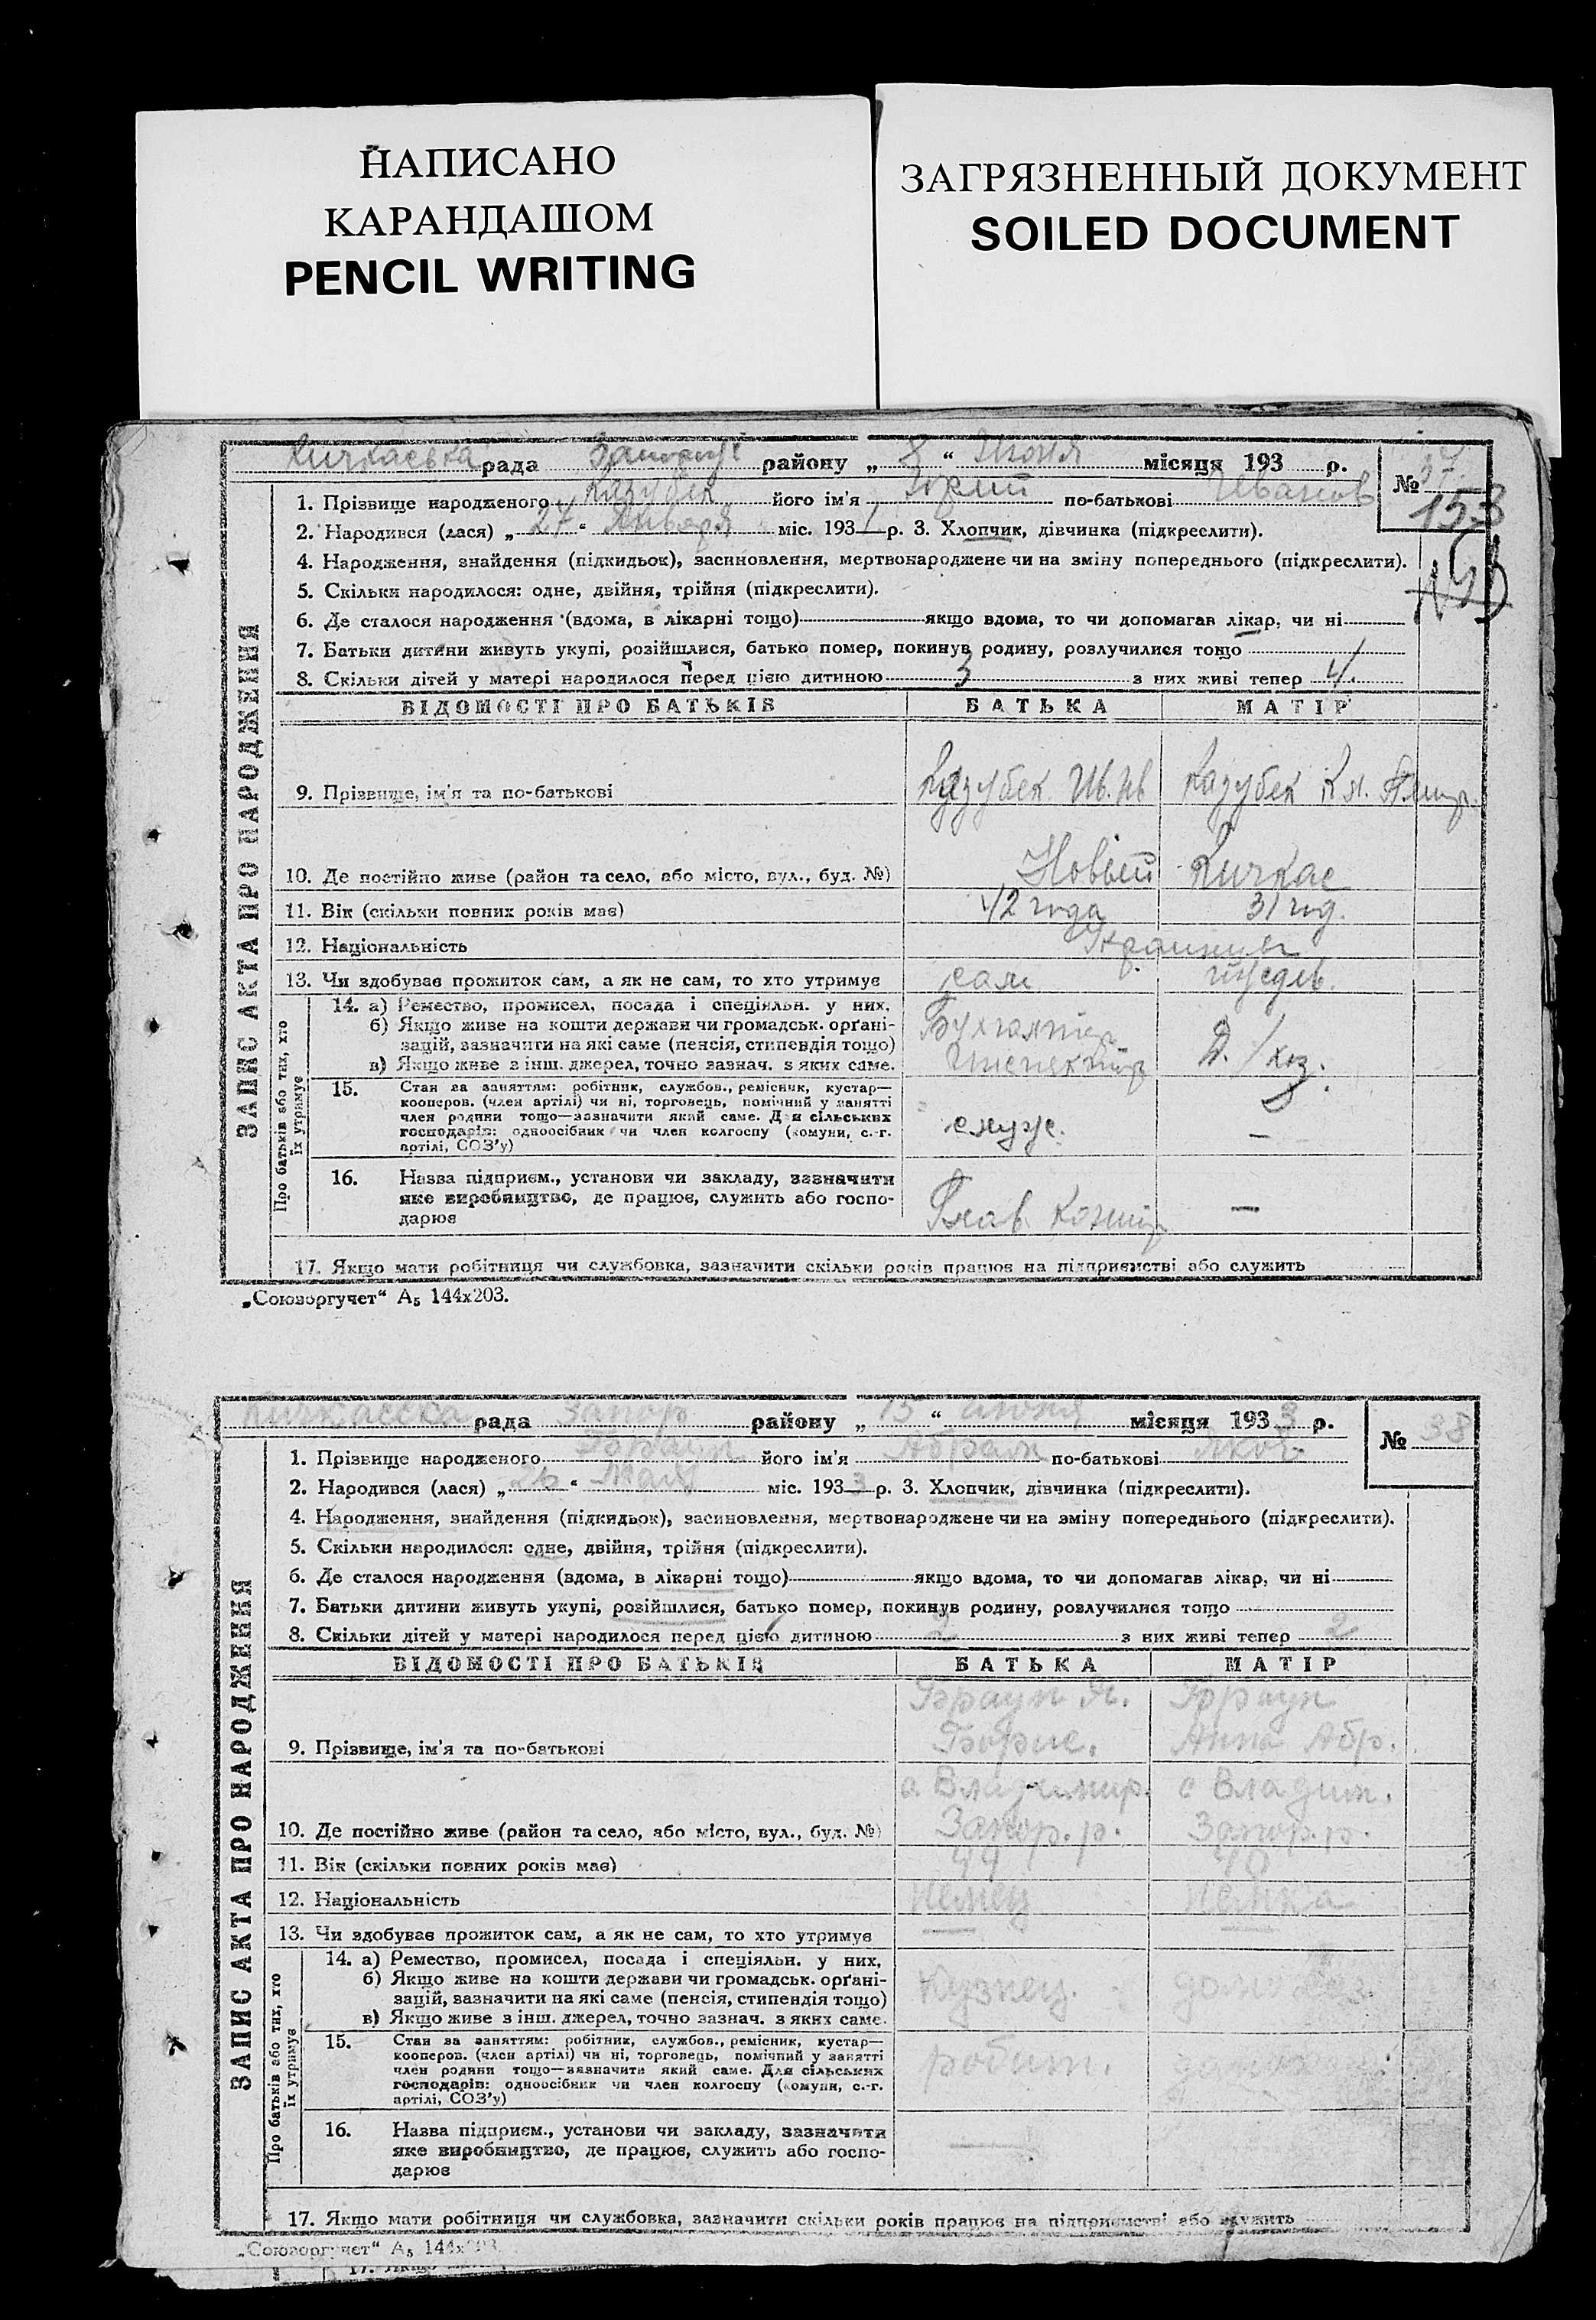 НАПИСАНО
КАРАНДАШОМ
PENCIL WRITING
ЗАГРЯЗНЕННЫЙ ДОКУМЕНТ
SOILED DOCUMENT
Кичкаевка рада району „ 8 “ Июня місяця 193 р.
№ 37.
153
1. Прізвище народженого Казубек його ім'я Юрий по-батькові Иванов
2. Народився (лася) „ 27 “ Января міс. 193 1 р. 3. Хлопчик, дівчинка (підкреслити).
4. Народження, знайдення (підкидьок), засиновлення, мертвонароджене чи на зміну попереднього (підкреслити).
5. Скільки народилося: одне, двійня, трійня (підкреслити).
6. Де сталося народження (вдома, в лікарні тощо) якщо вдома, то чи допомагав лікар, чи ні
7. Батьки дитини живуть укупі, розійшлися, батько помер, покинув родину, розлучилися тощо
8. Скільки дітей у матері народилося перед цією дитиною 3 з них живі тепер 4.
ВІДОМОСТІ ПРО БАТЬКІВ БАТЬКА МАТІР
9. Прізвище, ім'я та по-батькові Казубек Ив. Ив Казубек Кл.
10. Де постійно живе (район та село, або місто, вул., буд. №) Новый Кичкас
11. Вік (скільки повних років має) 42 года 31 год.
12. Національність Украинцы
13. Чи здобуває прожиток сам, а як не сам, то хто утримує сам иждев.
ЗАПИС АКТА ПРО НАРОДЖЕННЯ
Про батьків або тих, хто їх утримує
14. а) Ремество, промисел, посада і спеціяльн. у них.
б) Якщо живе на кошти держави чи громадськ. орґані-
зацій, зазначити на які саме (пенсія, стипендія тощо)
в) Якщо живе з інш. джерел, точно зазнач. з яких саме.
Бухгалтер
Инспектор
Д./хоз.
15. Стан за заняттям: робітник, службов., ремісник, кустар—
кооперов. (член артілі) чи ні, торговець, помічний у занятті
член родини тощо—зазначити який саме. Для сільських
господарів: одноосібник чи член колгоспу (комуни, с.-г.
артілі, СОЗ'у)
служ. —
16. Назва підприєм., установи чи закладу, зазначити
яке виробництво, де працює, служить або госпо-
дарює
Глав. —
17. Якщо мати робітниця чи службовка, зазначити скільки років працює на підприємстві або служить
„Союзоргучет“ А₅ 144х203.
Кичкаевка рада Запор району „ 15 “ июня місяця 193 3 р.
№ 38
1. Прізвище народженого Браун його ім'я Абрам по-батькові Яков.
2. Народився (лася) „ 26 “ Мая міс. 193 3 р. 3. Хлопчик, дівчинка (підкреслити).
4. Народження, знайдення (підкидьок), засиновлення, мертвонароджене чи на зміну попереднього (підкреслити).
5. Скільки народилося: одне, двійня, трійня (підкреслити).
6. Де сталося народження (вдома, в лікарні тощо) якщо вдома, то чи допомагав лікар, чи ні
7. Батьки дитини живуть укупі, розійшлися, батько помер, покинув родину, розлучилися тощо
8. Скільки дітей у матері народилося перед цією дитиною 2 з них живі тепер 2
ВІДОМОСТІ ПРО БАТЬКІВ БАТЬКА МАТІР
Браун Як. Браун
9. Прізвище, ім'я та по-батькові Борис. Анна Абр.
с. Владимир. с Владим.
10. Де постійно живе (район та село, або місто, вул., буд. №) Запор. р. Запор. р.
11. Вік (скільки повних років має) 44 40
12. Національність немец немка
13. Чи здобуває прожиток сам, а як не сам, то хто утримує
ЗАПИС АКТА ПРО НАРОДЖЕННЯ
Про батьків або тих, хто їх утримує
14. а) Ремество, промисел, посада і спеціяльн. у них.
б) Якщо живе на кошти держави чи громадськ. орґані-
зацій, зазначити на які саме (пенсія, стипендія тощо)
в) Якщо живе з інш. джерел, точно зазнач. з яких саме.
Кузнец. дом хоз.
15. Стан за заняттям: робітник, службов., ремісник, кустар—
кооперов. (член артілі) чи ні, торговець, помічний у занятті
член родини тощо—зазначити який саме. Для сільських
господарів: одноосібник чи член колгоспу (комуни, с.-г.
артілі, СОЗ'у)
робит.
16. Назва підприєм., установи чи закладу, зазначити
яке виробництво, де працює, служить або госпо-
дарює
17. Якщо мати робітниця чи службовка, зазначити скільки років працює на підприємстві або служить
„Союзоргучет“ А₅ 144х203.